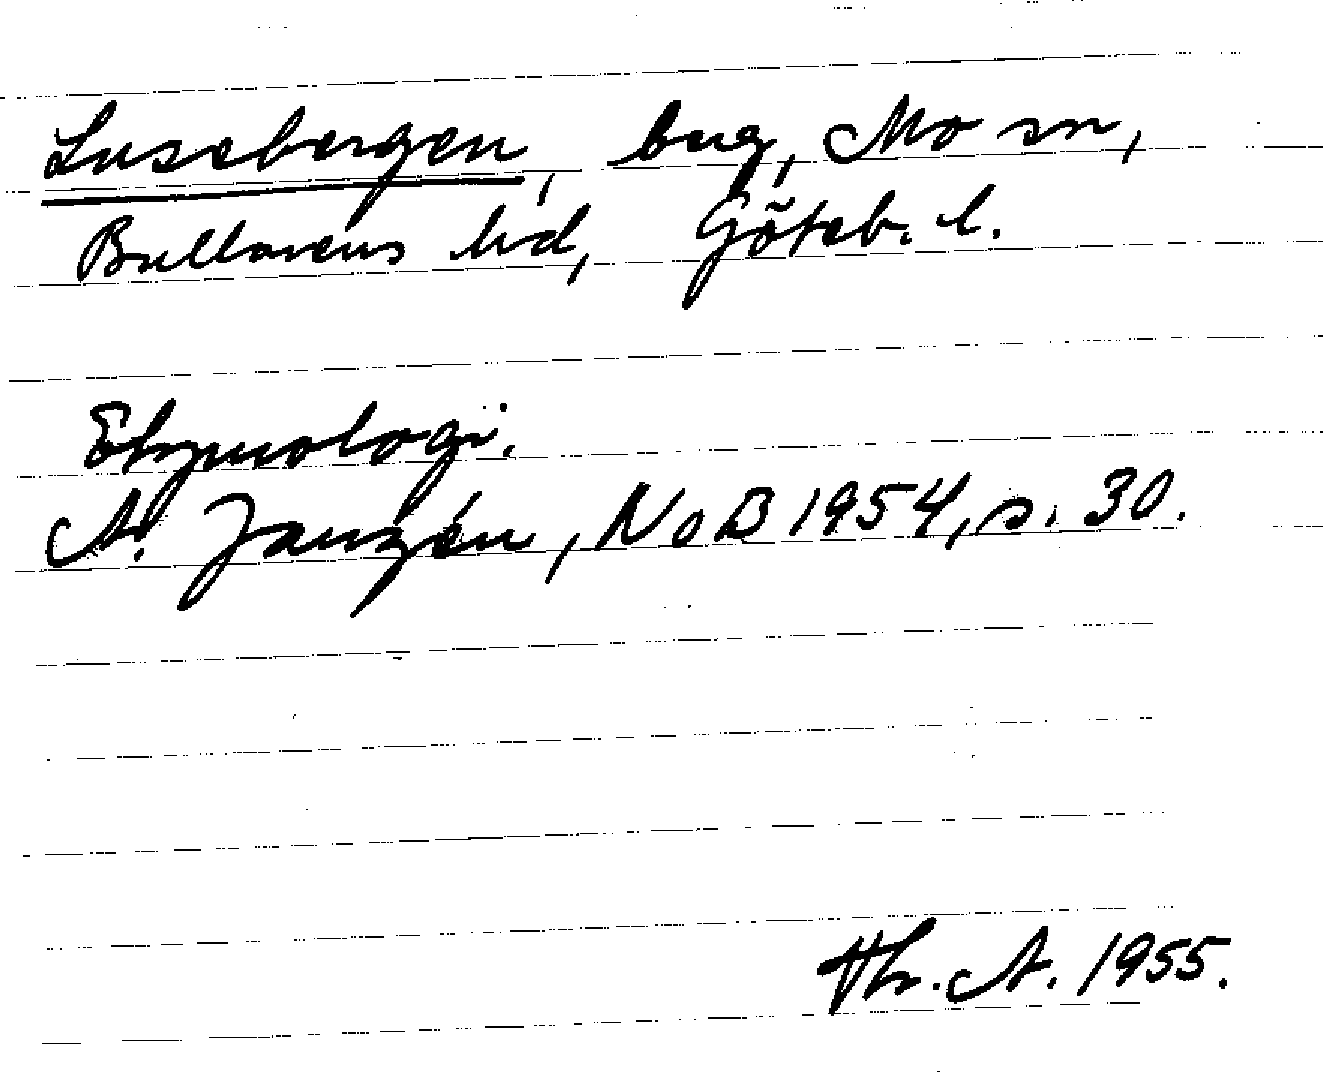 Lusebergen, bng, Mo sn,
Bullarens hd, Göteb. l.
Etymologi.
A. Janzén, NoB 1954, s. 30.
Th. A. 1955.